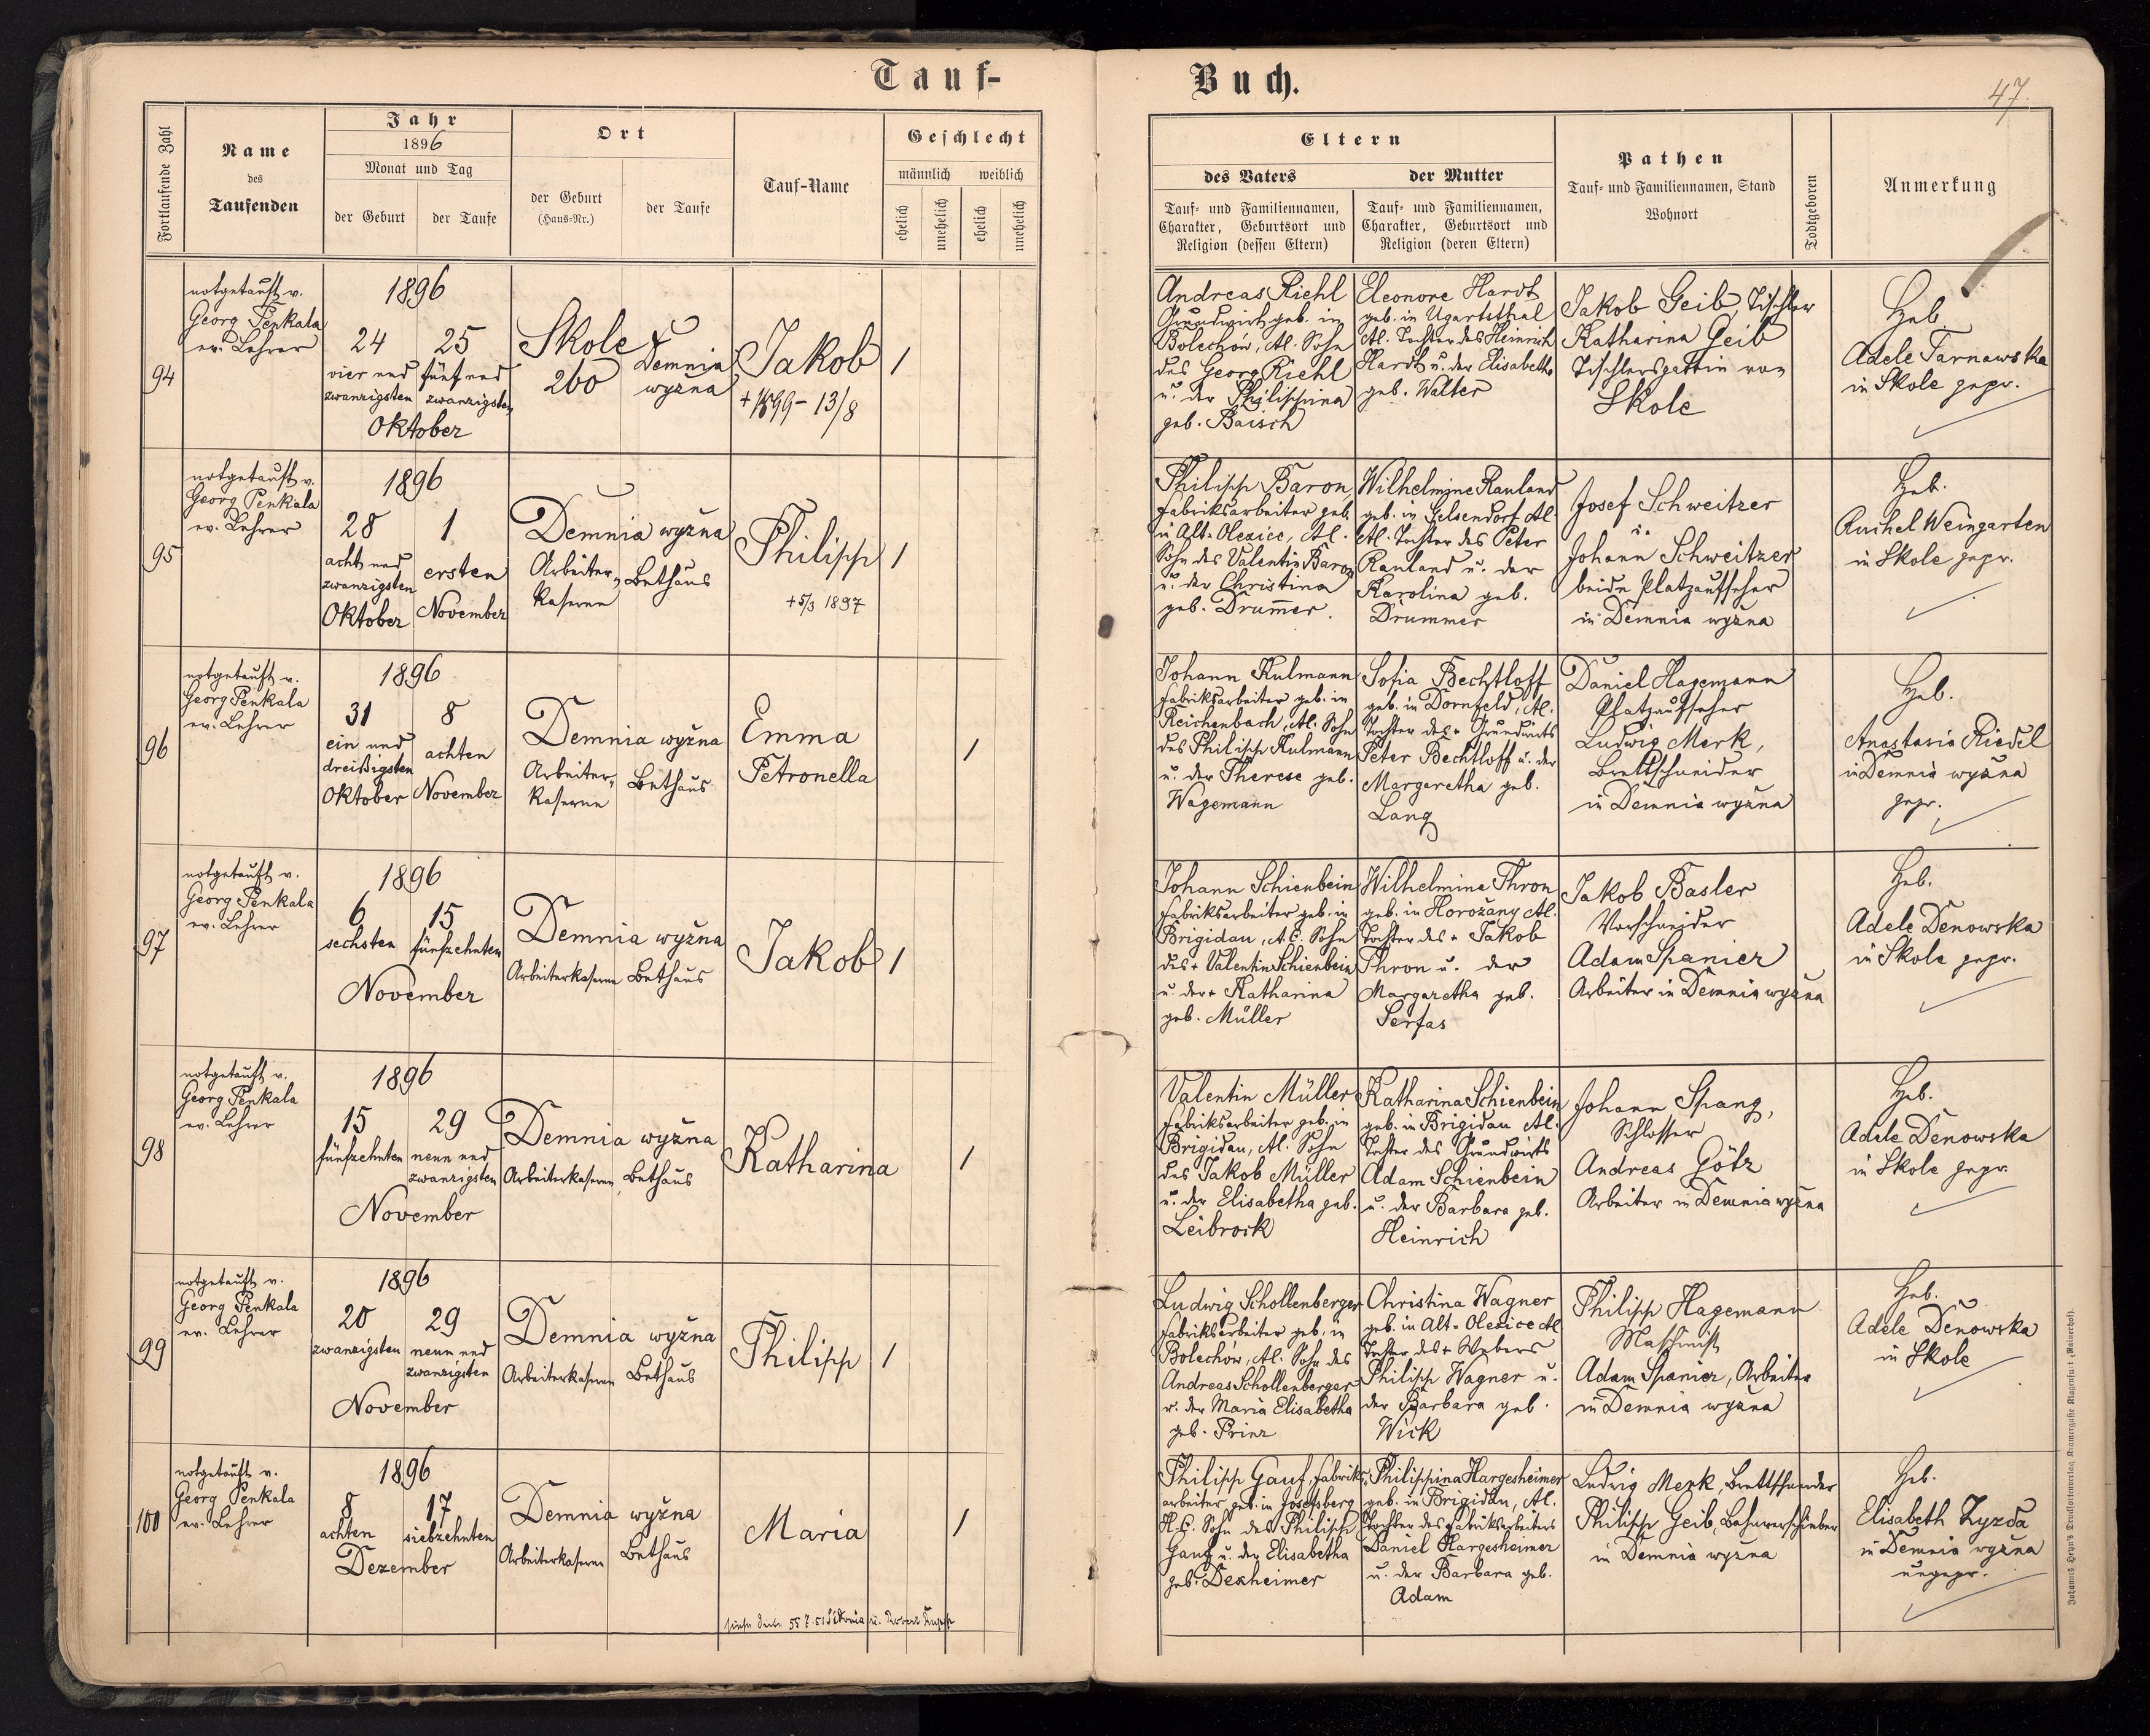 Tauf-
Fortlaufende Zahl
Name
des
Taufenden
Jahr
1896
Monat und Tag
der Geburt
der Taufe
Ort
der Geburt
(Haus-Nr.)
der Taufe
Tauf-Name
Geschlecht
männlich
weiblich
ehelich
unehelich
ehelich
unehelich
94
notgetauft v.
Georg Penkala
ev. Lehrer
1896
24
vier und
zwanzigsten
25
fünf und
zwanzigsten
Oktober
Skole
260
Demnia
wyżna
Jakob
+ 1899 - 13/8
1
95
notgetauft v.
Georg Penkala
ev. Lehrer
1896
28
acht und
zwanzigsten
Oktober
1
ersten
November
Demnia wyżna
Arbeiter-
kaserne
Bethaus
Philipp
+ 5/3 1897
1
96
notgetauft v.
Georg Penkala
ev. Lehrer
1896
31
ein und
dreißigsten
Oktober
8
achten
November
Demnia wyżna
Arbeiter-
kaserne
Bethaus
Emma
Petronella
1
97
notgetauft v.
Georg Penkala
ev. Lehrer
1896
6
sechsten
15
fünfzehnten
November
Demnia wyżna
Arbeiterkaserne
Bethaus
Jakob
1
98
notgetauft v.
Georg Penkala
ev. Lehrer
1896
15
fünfzehnten
29
neun und
zwanzigsten
November
Demnia wyżna
Arbeiterkaserne
Bethaus
Katharina
1
99
notgetauft v.
Georg Penkala
ev. Lehrer
1896
20
zwanzigsten
29
neun und
zwanzigsten
November
Demnia wyżna
Arbeiterkaserne
Bethaus
Philipp
1
100
notgetauft v.
Georg Penkala
ev. Lehrer
1896
8
achten
17
siebzehnten
Dezember
Demnia wyżna
Arbeiterkaserne
Bethaus
Maria
1
siehe Seite 55 Z. 51 Sidonia u. Robert
Buch.
47.
Eltern
des Vaters
Tauf- und Familiennamen,
Charakter, Geburtsort und
Religion (dessen Eltern)
der Mutter
Tauf- und Familiennamen,
Charakter, Geburtsort und
Religion (deren Eltern)
Pathen
Tauf- und Familiennamen, Stand
Wohnort
Todtgeboren
Anmerkung
Andreas Riehl
Grundwirt geb. in
Bolechów, A.C. Sohn
des Georg Riehl
u. der Philippina
geb. Baisch
Eleonore Hardt
geb. in Ugartsthal
A.C. Tochter des Heinrich
Hardt u. der Elisabetha
geb. Walter
Jakob Geib, Tischler
Katharina Geib
Tischlersgattin von
Skole
Heb.
Adele Tarnawska
in Skole gepr.
Philipp Baron
Fabriksarbeiter geb.
in Alt-Olexice, A.C.
Sohn des Valentin Baron
u. der Christina
geb. Drum̅er.
Wilhelmine Rauland
geb. in Gelsendorf A.C.
A.C. Tochter des Peter
Rauland u. der
Karolina geb.
Drummer
Josef Schweitzer
u.
Johann Schweitzer
beide Platzaufseher
in Demnia wyżna
Heb.
Ruchel Weingarten
in Skole gepr.
Johann Kulmann
Fabriksarbeiter geb. in
Reichenbach, A.C. Sohn
des Philipp Kulmann
u. der Therese geb.
Wagemann
Sofia Bechtloff
geb. in Dornfeld, A.C.
Tochter des + Grundwirts
Peter Bechtloff u. der
Margaretha geb.
Lang
Daniel Hagemann
Platzaufseher
Ludwig Merk,
Brettschneider
in Demnia wyżna
Heb.
Anastasia Riedel
in Demnia wyżna
gepr.
Johann Schienbein
Fabriksarbeiter geb. in
Brigidau, A.C. Sohn
des + Valentin Schienbein
u. der + Katharina
geb. Müller
Wilhelmine Thron
geb. in Horożany A.C.
Tochter des + Jakob
Thron u. der
Margaretha geb.
Serfas
Jakob Basler
Vorschneider
Adam Spanier
Arbeiter in Demnia wyżna
Heb.
Adele Denowska
in Skole gepr.
Valentin Müller
Fabriksarbeiter geb. in
Brigidau, A.C. Sohn
des Jakob Müller
u. der Elisabetha geb.
Leibrock
Katharina Schienbein
geb. in Brigidau A.C.
Tochter des Grundwirts
Adam Schienbein
u. der Barbara geb.
Heinrich
Johann Spang,
Schlosser
Andreas Götz
Arbeiter in Demnia wyżna
Heb.
Adele Denowska
in Skole gepr.
Ludwig Schollenberger
Fabriksarbeiter geb. in
Bolechów, A.C. Sohn des
Andreas Schollenberger
u. der Maria Elisabetha
geb. Prinz
Christina Wagner
geb. in Alt-Olexice A.C.
Tochter des + Webers
Philipp Wagner u.
der Barbara geb.
Wick
Philipp Hagemann
Maschinist
Adam Spanier, Arbeiter
in Demnia wyżna
Heb.
Adele Denowska
in Skole
Philipp Gauf, Fabriks-
arbeiter geb. in Josefsberg
H.C. Sohn des Philipp
Gauf u. der Elisabetha
geb. Dexheimer
Philippina Hargesheimer
geb. in Brigidau, A.C.
Tochter des Fabriksarbeiters
Daniel Hargesheimer
u. der Barbara geb.
Adam
Ludwig Merk, Brettschneider
Philipp Geib, Bahnverschieber
in Demnia wyżna
Heb.
Elisabeth Zyzda
in Demnia wyżna
ungepr.
Johannes Heyn's Drucksortenverlag Kramergasse Klagenfurt (Rainerhof).